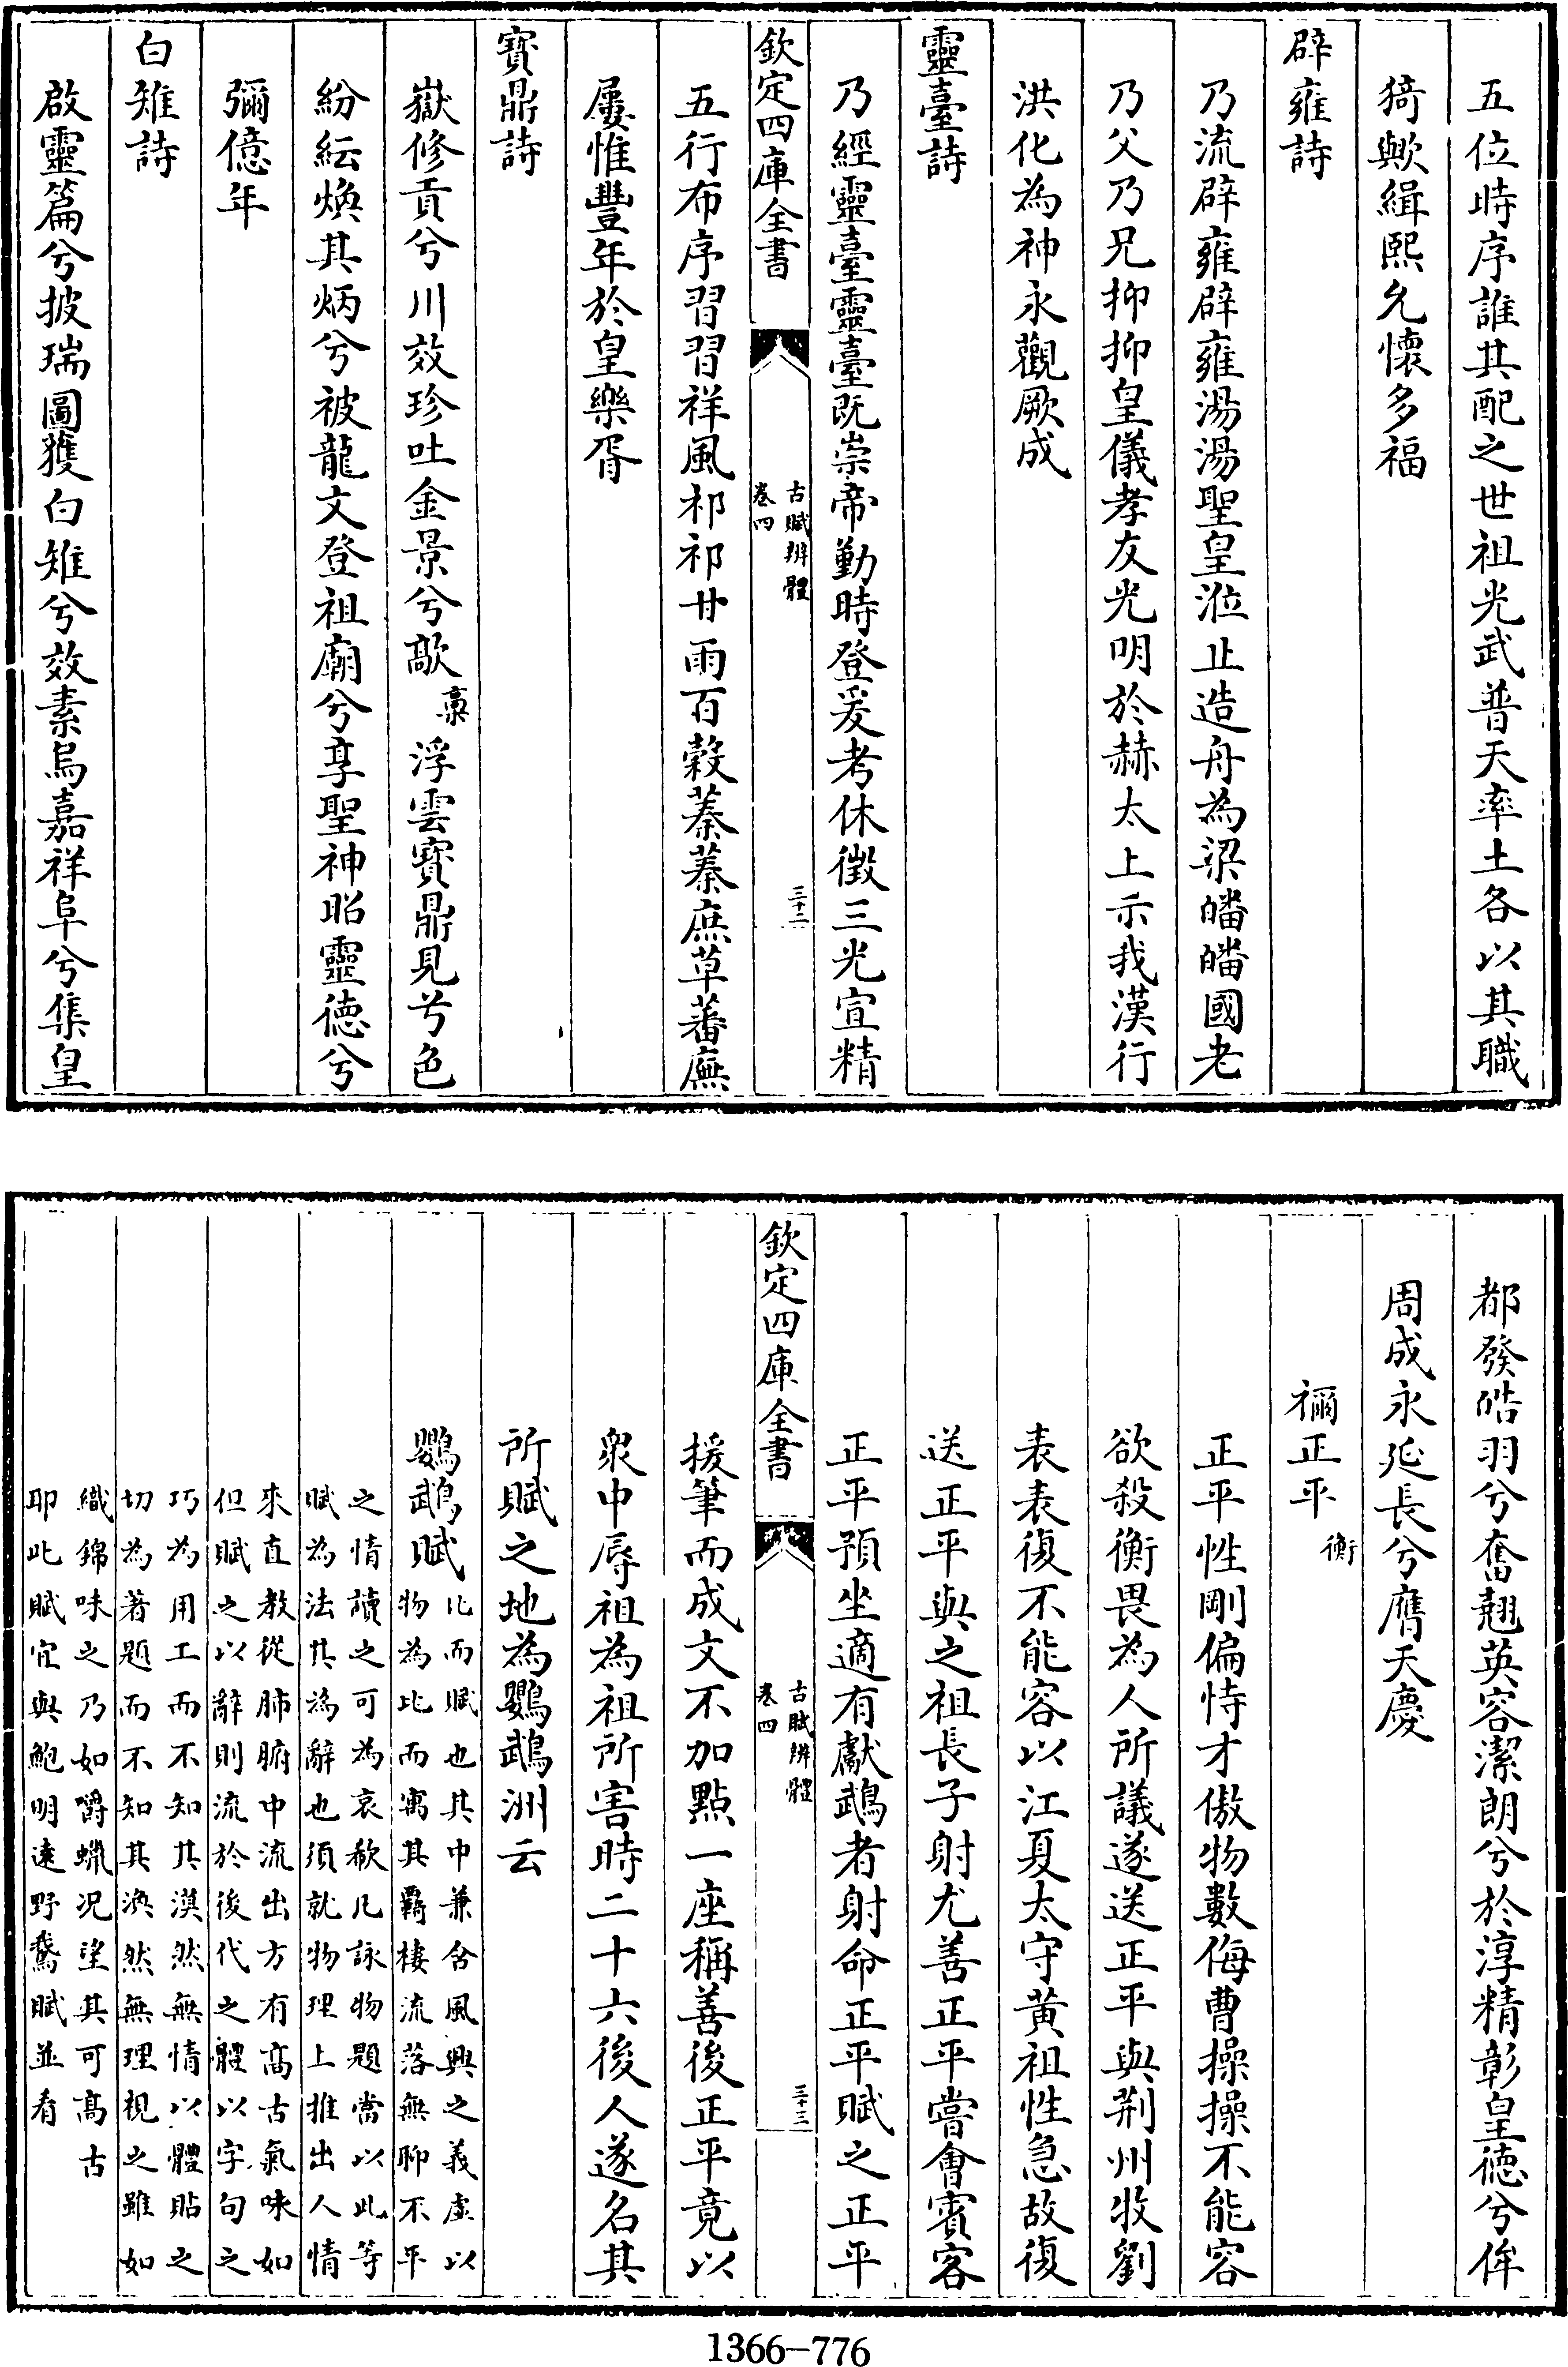 五位時序誰其配之世祖光武普天率土各以其職
猗歟緝熙允懷多福
辟雍詩
乃流辟雍辟雍湯湯聖皇涖止造舟為梁皤皤國老
乃父乃兄抑抑皇儀孝友光明於赫太上示我漢行
洪化為神永觀厥成
靈臺詩
乃經靈臺靈臺既崇帝勤時登爰考休徵三光宣精
欽定四庫全書
古賦辨體
卷四
三十二
五行布序習習祥風祁祁甘雨百穀蓁蓁庶草蕃廡
屢惟豐年於皇樂胥
寶鼎詩
嶽修貢兮川效珍吐金景兮歊槀浮雲寶鼎見兮色
紛紜煥其炳兮被龍文登祖廟兮享聖神昭靈德兮
彌億年
白雉詩
啟靈篇兮披瑞圖獲白雉兮效素烏嘉祥阜兮集皇
都發皓羽兮奮翹英容潔朗兮於淳精彰皇德兮侔
周成永延長兮膺天慶
禰正平衡
正平性剛偏恃才傲物數侮曹操操不能容
欲殺衡畏為人所議遂送正平與荆州牧劉
表表復不能容以江夏太守黄祖性急故復
送正平與之祖長子射尤善正平嘗會賓客
正平預坐適有獻鵡者射命正平賦之正平
欽定四庫全書
古賦辨體
卷四
三十三
援筆而成文不加點一座稱善後正平竟以
衆中辱祖為祖所害時二十六後人遂名其
所賦之地為鸚鵡洲云
鸚鵡賦比而賦也其中兼含風興之義虚以
物為比而寓其羇棲流落無聊不平
之情讀之可為哀歎凡詠物題當以此等
賦為法其為辭也須就物理上推出人情
來直教從肺腑中流出方有高古氣味如
但賦之以辭則流於後代之體以字句之
巧為用工而不知其漠然無情以體貼之
切為著題而不知其渙然無理視之雖如
織錦味之乃如嚼蠟况望其可髙古
耶此賦宜與鮑明遠野鵞賦並看
1366-776